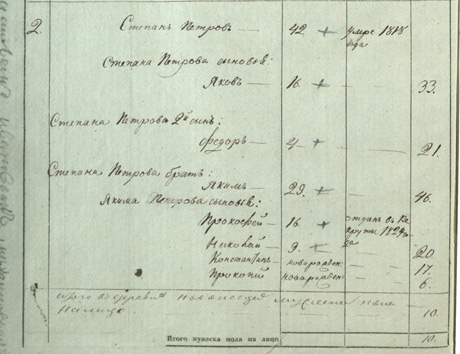 2. Степанъ Петровъ — 42 + умре 1818 года
Степана Петрова сыновья:
Яковъ — 16 + 33.
Степана Петрова 2й сынъ:
Федоръ — 4 + 21.
Степана Петрова братъ:
Якимъ — 29 + 46.
Якима Петрова сыновья:
Прокофей — 16 + отданъ въ рекруты 1824 года
Николай — 9 + 20.
Константинъ — новорожден: 17.
Прокопий новорожден: 6.
мужеска пола
налицо 10.
Итого мужеска пола на лицо 10.